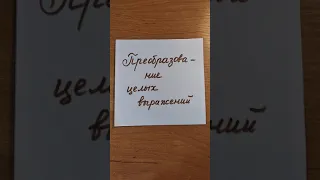 Преобразова-
ние
целых
выражений